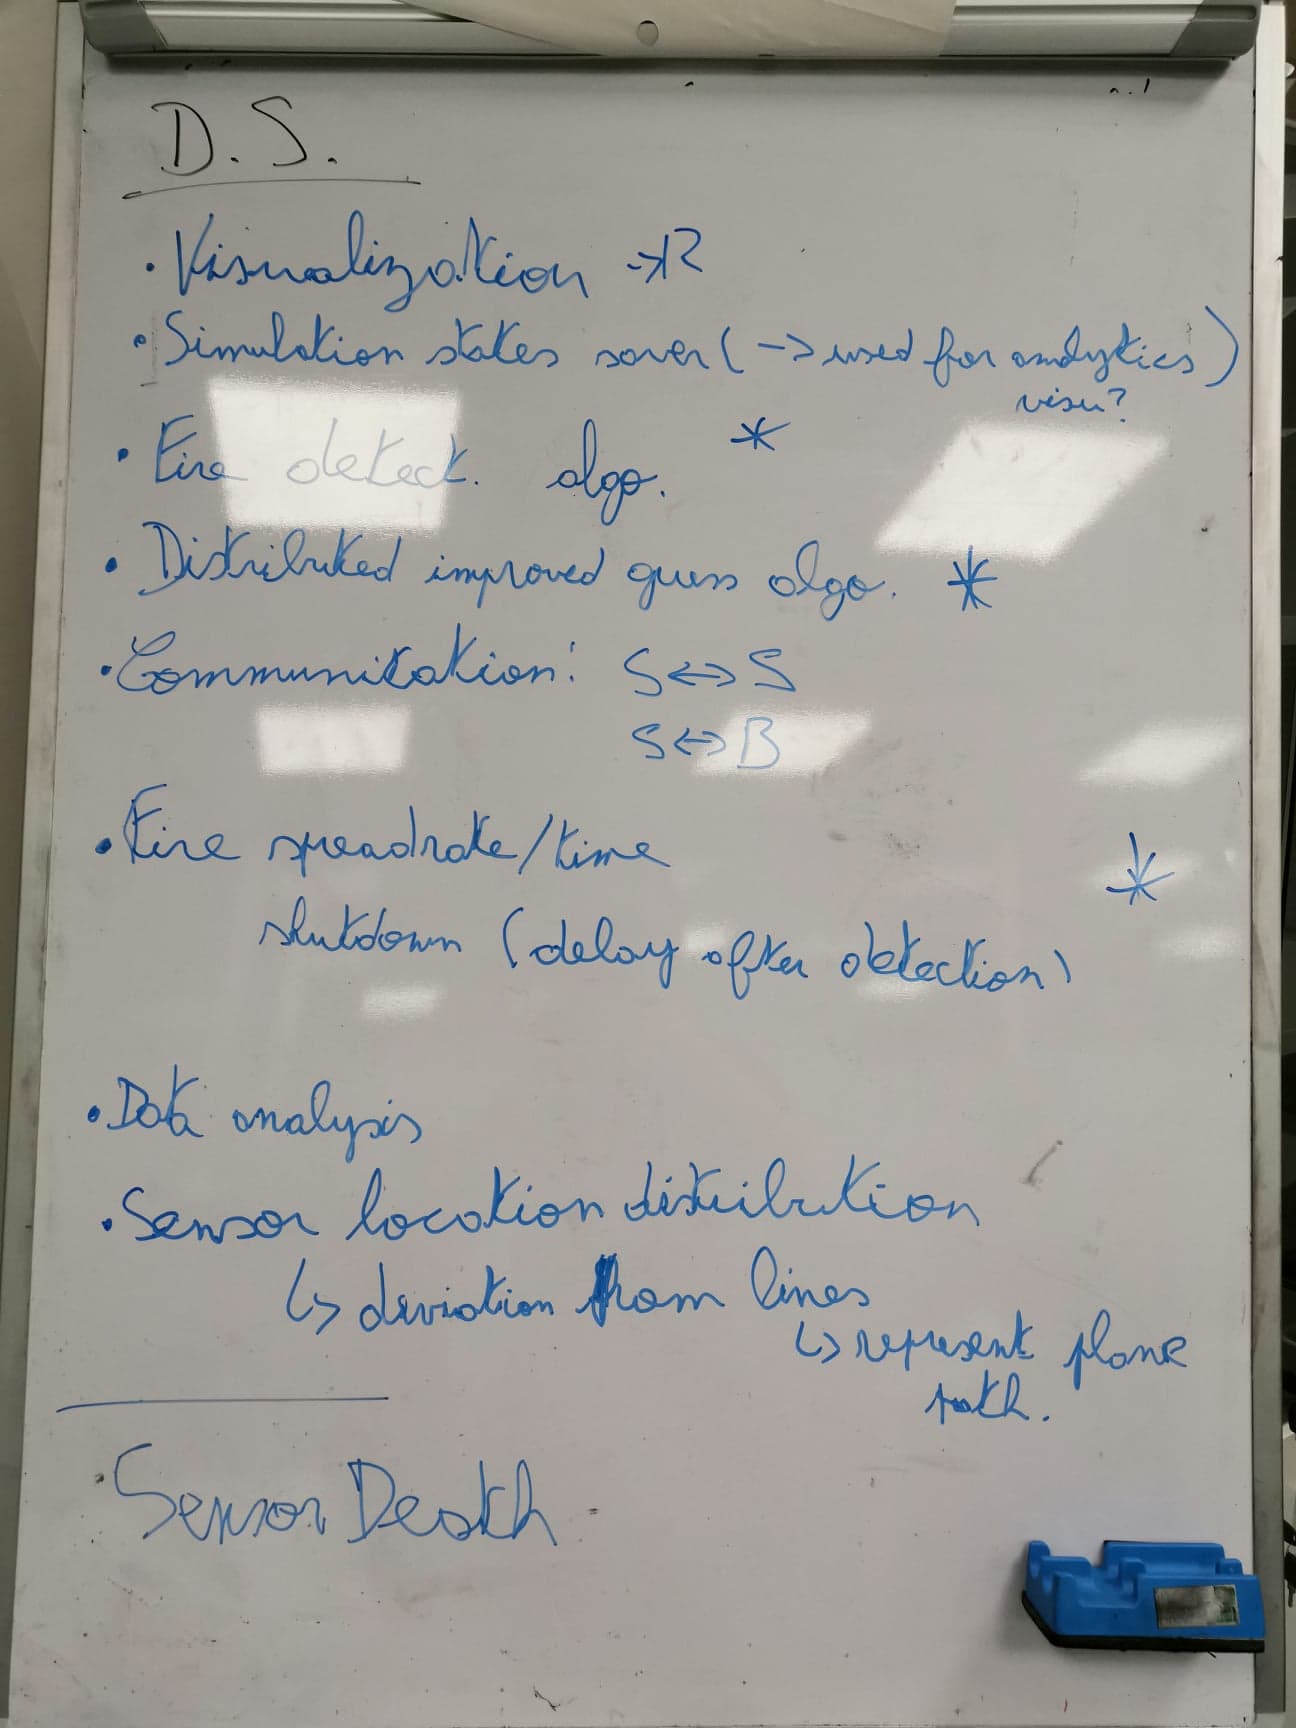 D.S.
• Visualization
• Simulation states saver (-> used for analytics)
visu?
• Fire detect. algo. *
• Distributed improved guess algo. *
• Communication: S <-> S
S <-> B
• Fire spreadrate/time *
shutdown (delay after detection)
• Data analysis
• Sensor location distribution
↳ deviation from lines
↳ represent plane
path.
• Sensor Death